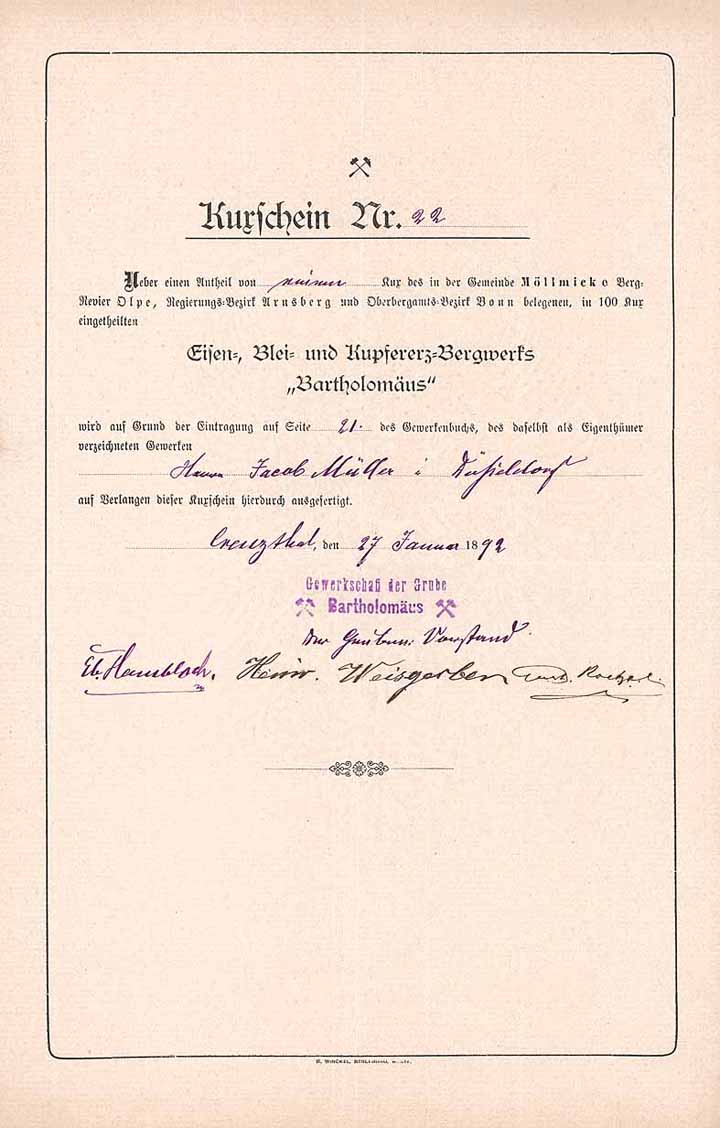 Kuxschein Nr. 22
Ueber einen Antheil von einem Kux des in der Gemeinde Möllmicke Berg-
Revier Olpe, Regierungs-Bezirk Arnsberg und Oberbergamts-Bezirk Bonn belegenen, in 100 Kux
eingetheilten
Eisen-, Blei- und Kupfererz-Bergwerks
„Bartholomäus“
wird auf Grund der Eintragung auf Seite 21. des Gewerkenbuchs, des daselbst als Eigenthümer
verzeichneten Gewerken
Herrn Jacob Müller i Düsseldorf
auf Verlangen dieser Kuxschein hierdurch ausgefertigt.
Creuzthal, den 27 Januar 1892
Gewerkschaft der Grube
Bartholomäus
Der Gruben-Vorstand
Eb. Hambloch. Heinr. Weisgerber